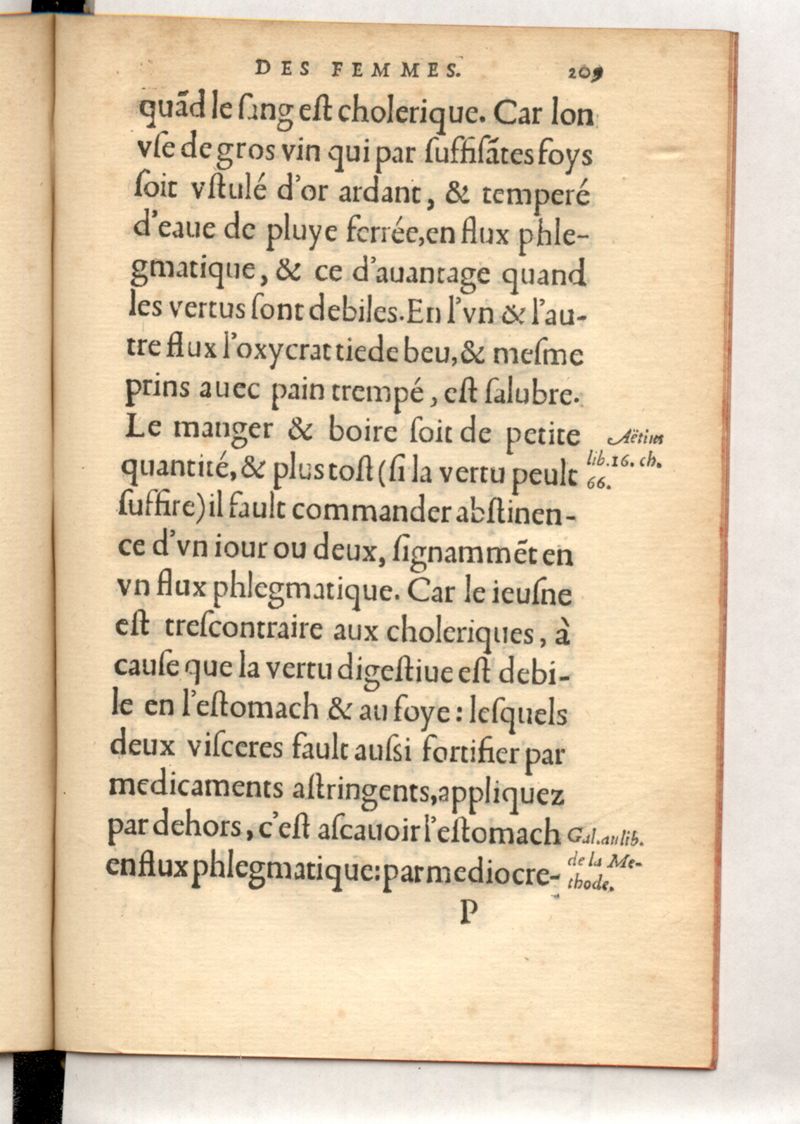 DES FEMMES. 209
quãd le sang est cholerique. Car lon
vſe de gros vin qui par ſuffiſãtes foys
ſoit vſtulé d'or ardant, & temperé
d'eaue de pluye ferrée, en flux phle-
gmatique, & ce d'auantage quand
les vertus ſont debiles. En l'vn & l'au-
tre flux l'oxycrat tiede beu, & meſme
prins auec pain trempé, eſt ſalubre.
Le manger & boire ſoit de petite
quantité, & plus toſt (ſi la vertu peult
ſuffire) il fault commander abſtinen-
ce d'vn iour ou deux, ſignammẽt en
vn flux phlegmatique. Car le ieuſne
eſt treſcontraire aux choleriques, à
cauſe que la vertu digeſtiue eſt debi-
le en l'eſtomach & au foye: leſquels
deux viſceres fault auſsi fortifier par
medicaments aſtringents, appliquez
par dehors, c'eſt aſcauoir l'eſtomach
en flux phlegmatique: par mediocre-
P
Aëtius
lib. 16. ch.
66.
Gal. au lib.
de la Me-
thode.